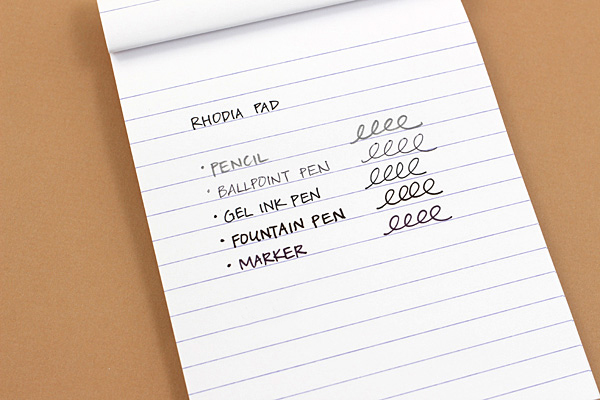 RHODIA PAD
· PENCIL
· BALLPOINT PEN
· GEL INK PEN
· FOUNTAIN PEN
· MARKER